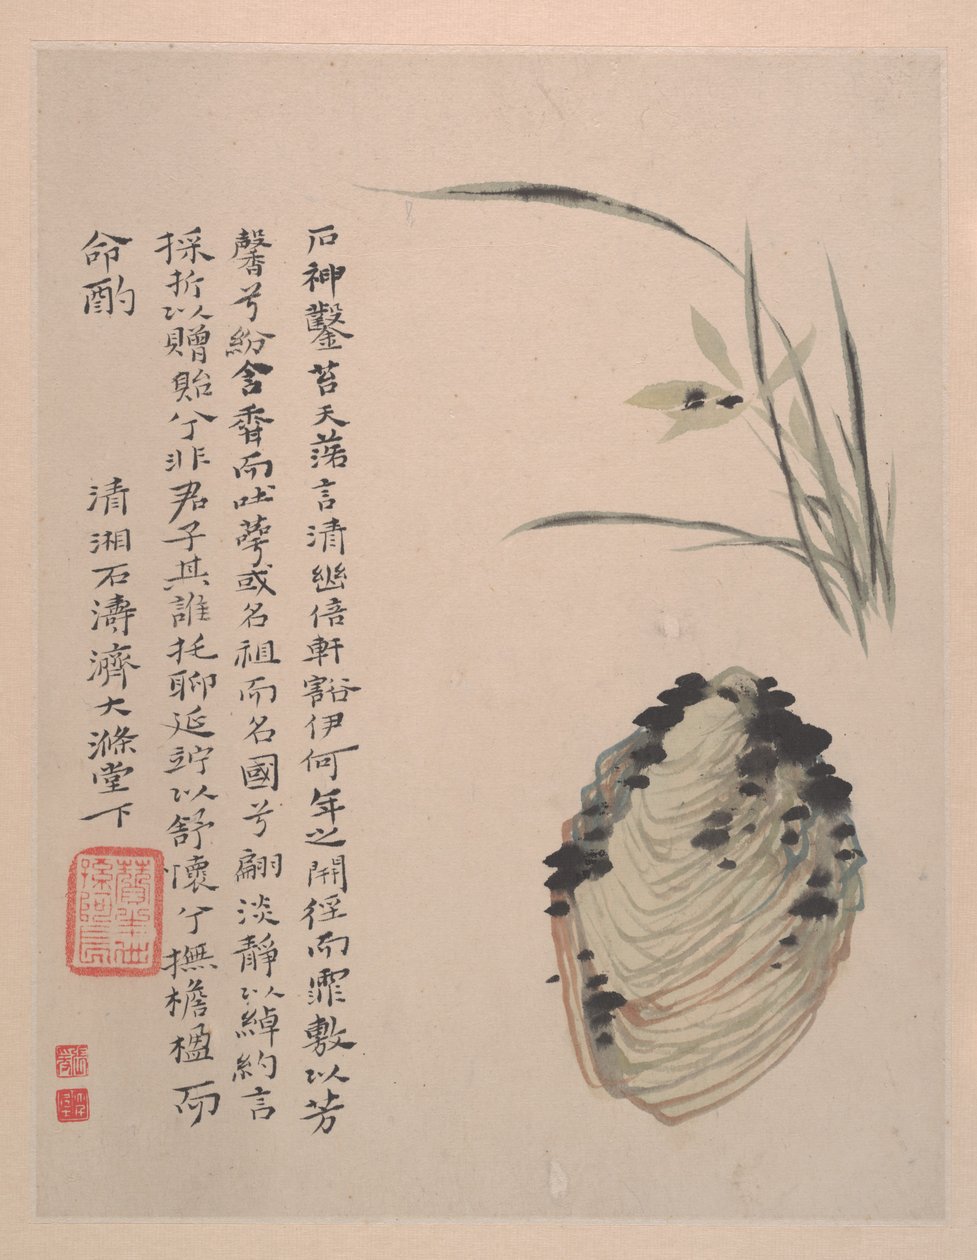 石神鑿苔天落言清幽倍軒豁伊何年之開徑而霏敷以芳
馨兮紛含香而吐萼或名祖而名國兮翩淡靜以綽約言
採折以贈貽兮非君子其誰托聊延竚以舒懷兮撫檐楹而
命酌
清湘石濤濟大滌堂下
贊之十世孫阿長